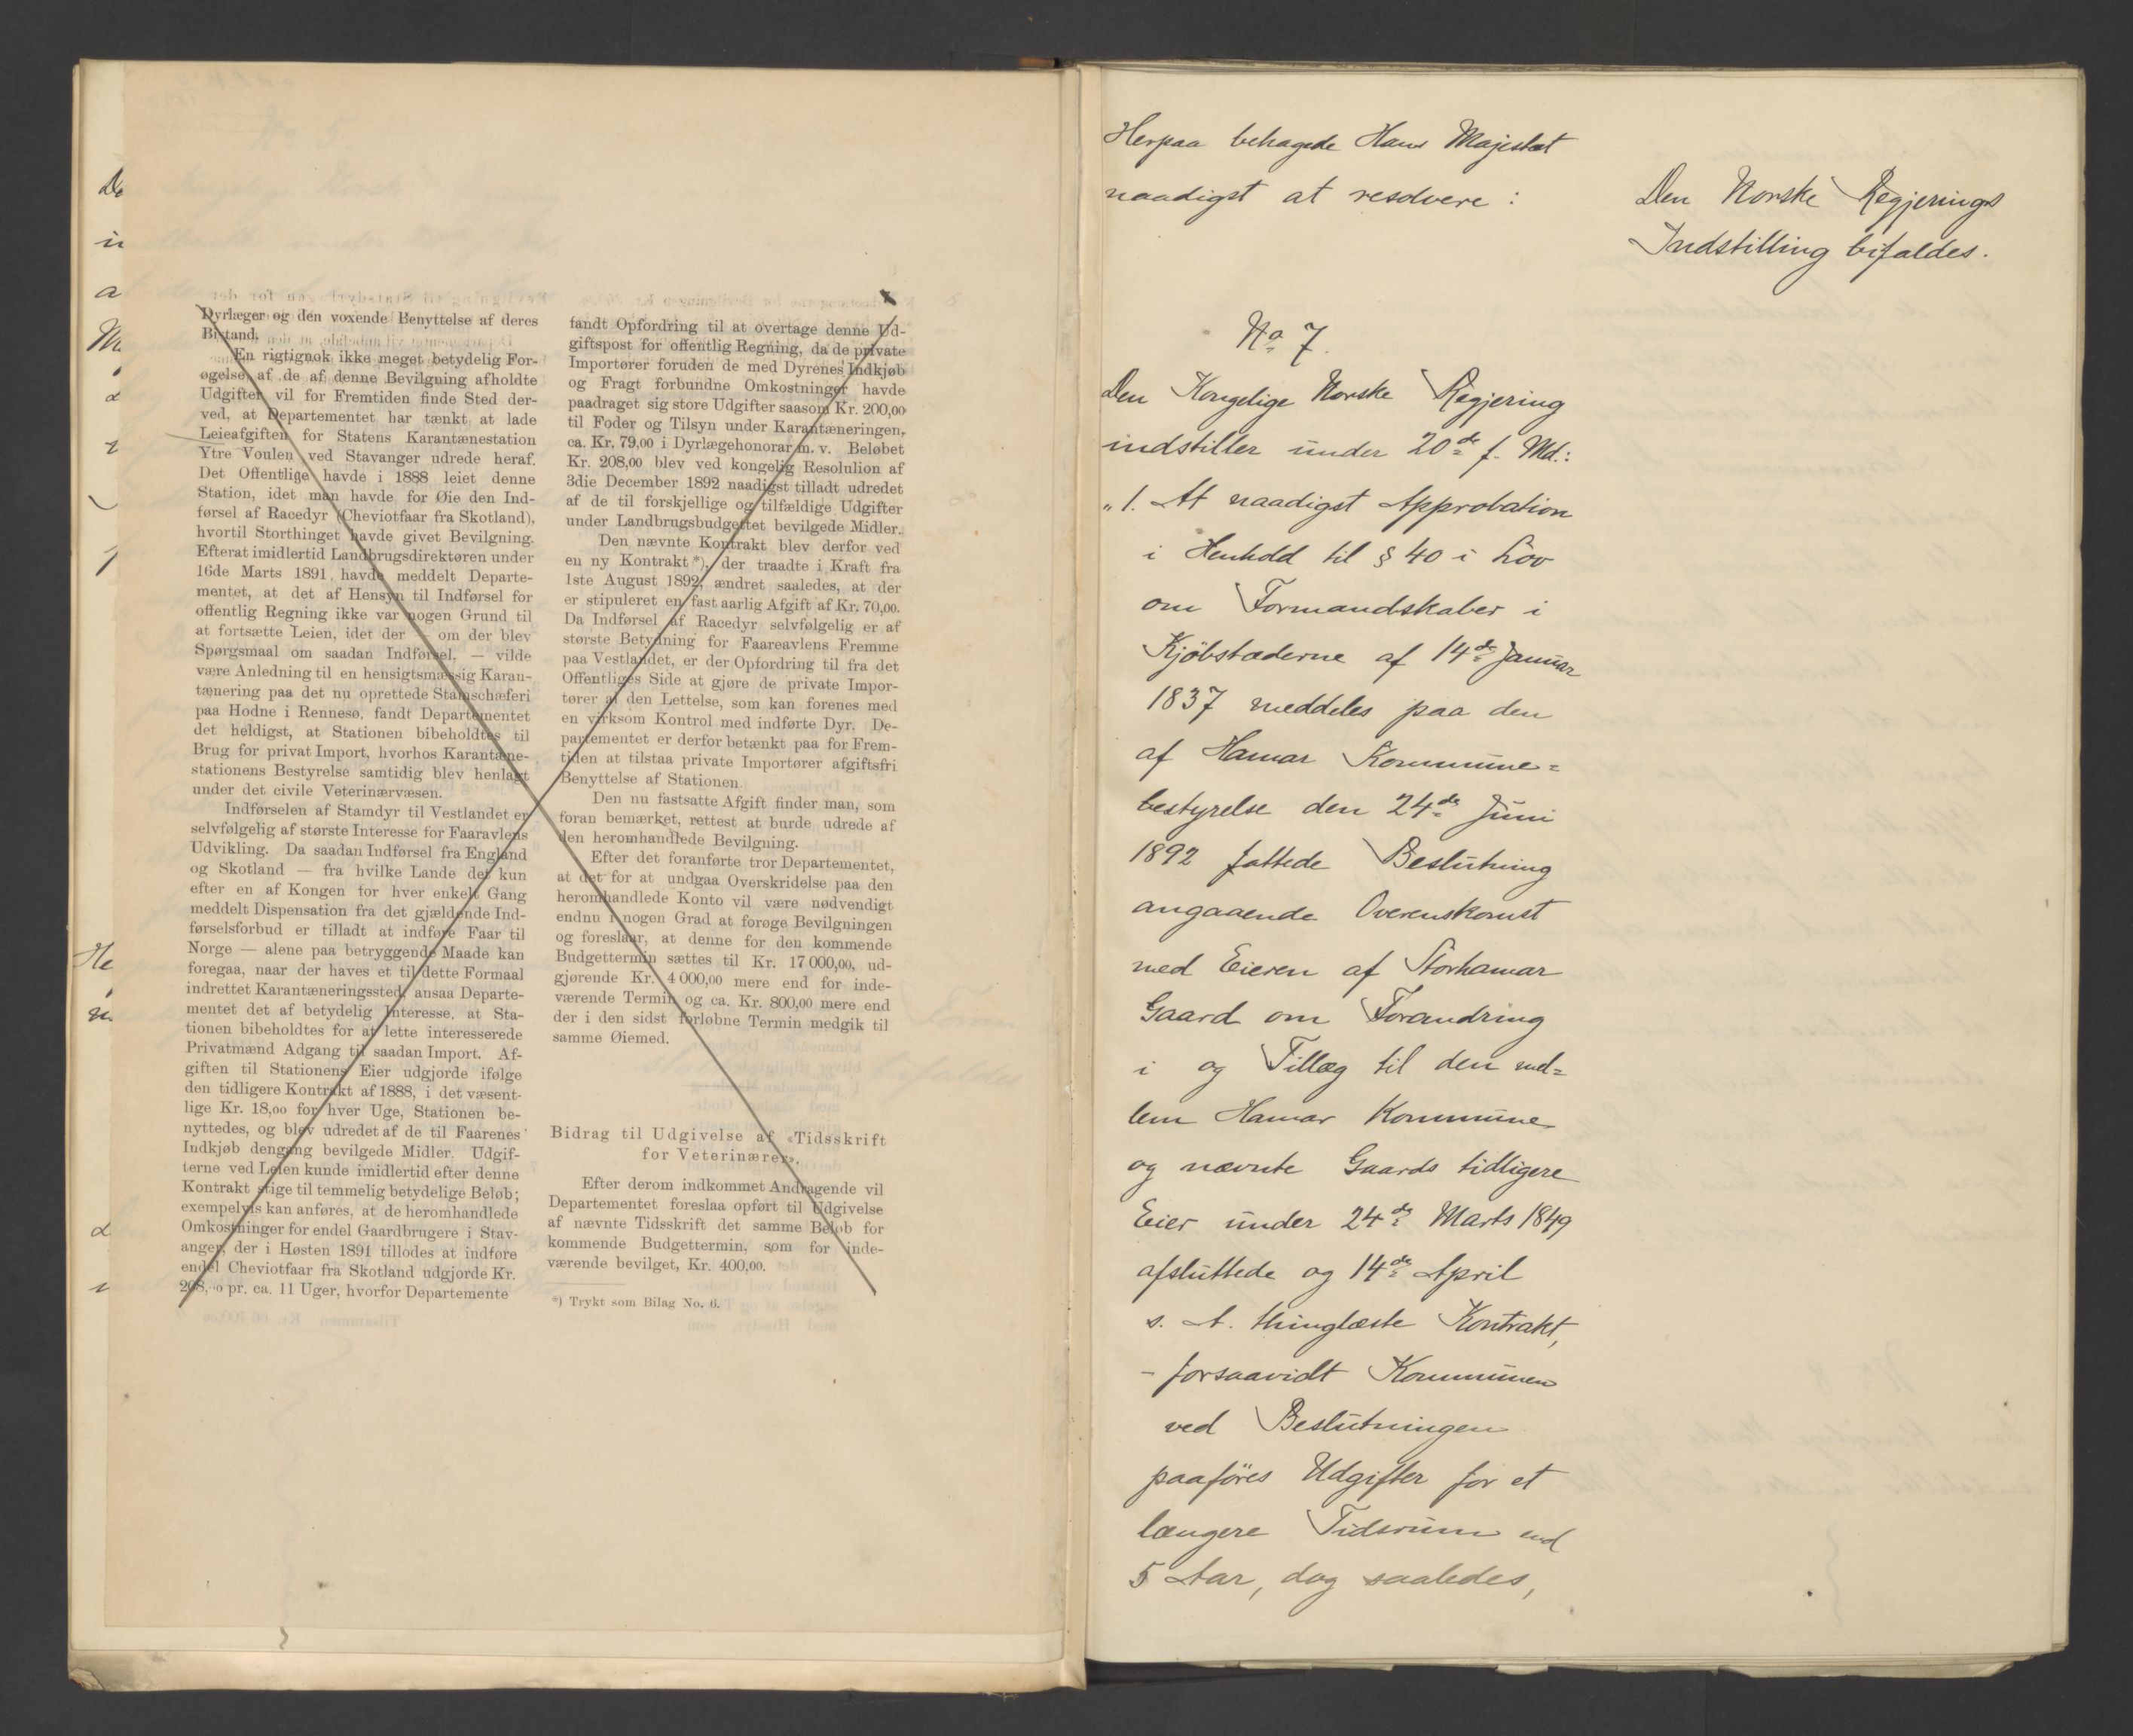 Dyrlæger og den voxende Benyttelse af deres
Bistand.
En rigtignok ikke meget betydelig For-
øgelse af de af denne Bevilgning afholdte
Udgifter vil for Fremtiden finde Sted der-
ved, at Departementet har tænkt at lade
Leieafgiften for Statens Karantænestation
Ytre Voulen ved Stavanger udrede heraf.
Det Offentlige havde i 1888 leiet denne
Station, idet man havde for Øie den Ind-
førsel af Racedyr (Cheviotfaar fra Skotland),
hvortil Storthinget havde givet Bevilgning.
Efterat imidlertid Landbrugsdirektøren under
16de Marts 1891 havde meddelt Departe-
mentet, at det af Hensyn til Indførsel for
offentlig Regning ikke var nogen Grund til
at fortsætte Leien, idet der — om der blev
Spørgsmaal om saadan Indførsel, — vilde
være Anledning til en hensigtsmæssig Karan-
tænering paa det nu oprettede Stamschæferi
paa Hodne i Rennesø, fandt Departementet
det heldigst, at Stationen bibeholdtes til
Brug for privat Import, hvorhos Karantæne-
stationens Bestyrelse samtidig blev henlagt
under det civile Veterinærvæsen.
Indførselen af Stamdyr til Vestlandet er
selvfølgelig af største Interesse for Faaravlens
Udvikling. Da saadan Indførsel fra England
og Skotland — fra hvilke Lande det kun
efter en af Kongen for hver enkelt Gang
meddelt Dispensation fra det gjældende Ind-
førselsforbud er tilladt at indføre Faar til
Norge — alene paa betryggende Maade kan
foregaa, naar der haves et til dette Formaal
indrettet Karantæneringssted, ansaa Departe-
mentet det af betydelig Interesse, at Sta-
tionen bibeholdtes for at lette interesserede
Privatmænd Adgang til saadan Import. Af-
giften til Stationens Eier udgjorde ifølge
den tidligere Kontrakt af 1888, i det væsent-
lige Kr. 18,00 for hver Uge, Stationen be-
nyttedes, og blev udredet af de til Faarenes
Indkjøb dengang bevilgede Midler. Udgif-
terne ved Leien kunde imidlertid efter denne
Kontrakt stige til temmelig betydelige Beløb;
exempelvis kan anføres, at de heromhandlede
Omkostninger for endel Gaardbrugere i Stav-
anger, der i Høsten 1891 tillodes at indføre
endel Cheviotfaar fra Skotland udgjorde Kr.
208,00 pr. ca. 11 Uger, hvorfor Departemente
fandt Opfordring til at overtage denne Ud-
giftspost for offentlig Regning, da de private
Importører foruden de med Dyrenes Indkjøb
og Fragt forbundne Omkostninger havde
paadraget sig store Udgifter saasom Kr. 200,00
til Foder og Tilsyn under Karantæneringen,
ca. Kr. 79,00 i Dyrlægehonorar m. v. Beløbet
Kr. 208,00 blev ved kongelig Resolulion af
3die December 1892 naadigst tilladt udredet
af de til forskjellige og tilfældige Udgifter
under Landbrugsbudgettet bevilgede Midler.
Den nævnte Kontrakt blev derfor ved
en ny Kontrakt *), der traadte i Kraft fra
1ste August 1892, ændret saaledes, at der
er stipuleret en fast aarlig Afgift af Kr. 70,00.
Da Indførsel af Racedyr selvfølgelig er af
største Betydning for Faareavlens Fremme
paa Vestlandet, er der Opfordring til fra det
Offentliges Side at gjøre de private Impor-
tører al den Lettelse, som kan forenes med
en virksom Kontrol med indførte Dyr. De-
partementet er derfor betænkt paa for Frem-
tiden at tilstaa private Importører afgiftsfri
Benyttelse af Stationen
Den nu fastsatte Afgift finder man, som
foran bemærket, rettest at burde udrede af
den heromhandlede Bevilgning.
Efter det foranførte tror Departementet,
at det for at undgaa Overskridelse paa den
heromhandlede Konto vil være nødvendigt
endnu i nogen Grad at forøge Bevilgningen
og foreslaar, at denne for den kommende
Budgettermin sættes til Kr. 17 000,00, ud-
gjørende Kr. 4 000,00 mere end for inde-
værende Termin og ca. Kr. 800,00 mere end
der i den sidst forløbne Termin medgik til
samme Øiemed.
Bidrag til Udgivelse af «Tidsskrift
for Veterinærer».
Efter derom indkommet Andragende vil
Departementet foreslaa opført til Udgivelse
af nævnte Tidsskrift det samme Beløb for
kommende Budgettermin, som for inde-
værende bevilget, Kr. 400,00.
*) Trykt som Bilag No. 6.
Herpaa behagede Hans Majestæt
naadigst at resolvere :
Den Norske Regjerings
Indstilling bifaldes.
No 7.
Den Kongelige Norske Regjering
indstiller under 20de f. Md.:
„ 1. At naadigst Approbation
i Henhold til § 40 i Lov
om Formandskaber i
Kjöbstæderne af 14de Januar
1837 meddeles paa den
af Hamar Kommune=
bestyrelse den 24de Juni
1892 fattede Beslutning
angaaende Overenskomst
med Eieren af Storhamar
Gaard om Forandring
i og Tillæg til den mel=
lem Hamar Kommune
og nævnte Gaards tidligere
Eier under 24de Marts 1849
afsluttede og 14de April
s. A. thinglæste Kontrakt,
- forsaavidt Kommunen
ved Beslutningen
paaföres Udgifter for et
længere Tidsrum end
5 Aar, dog saaledes,